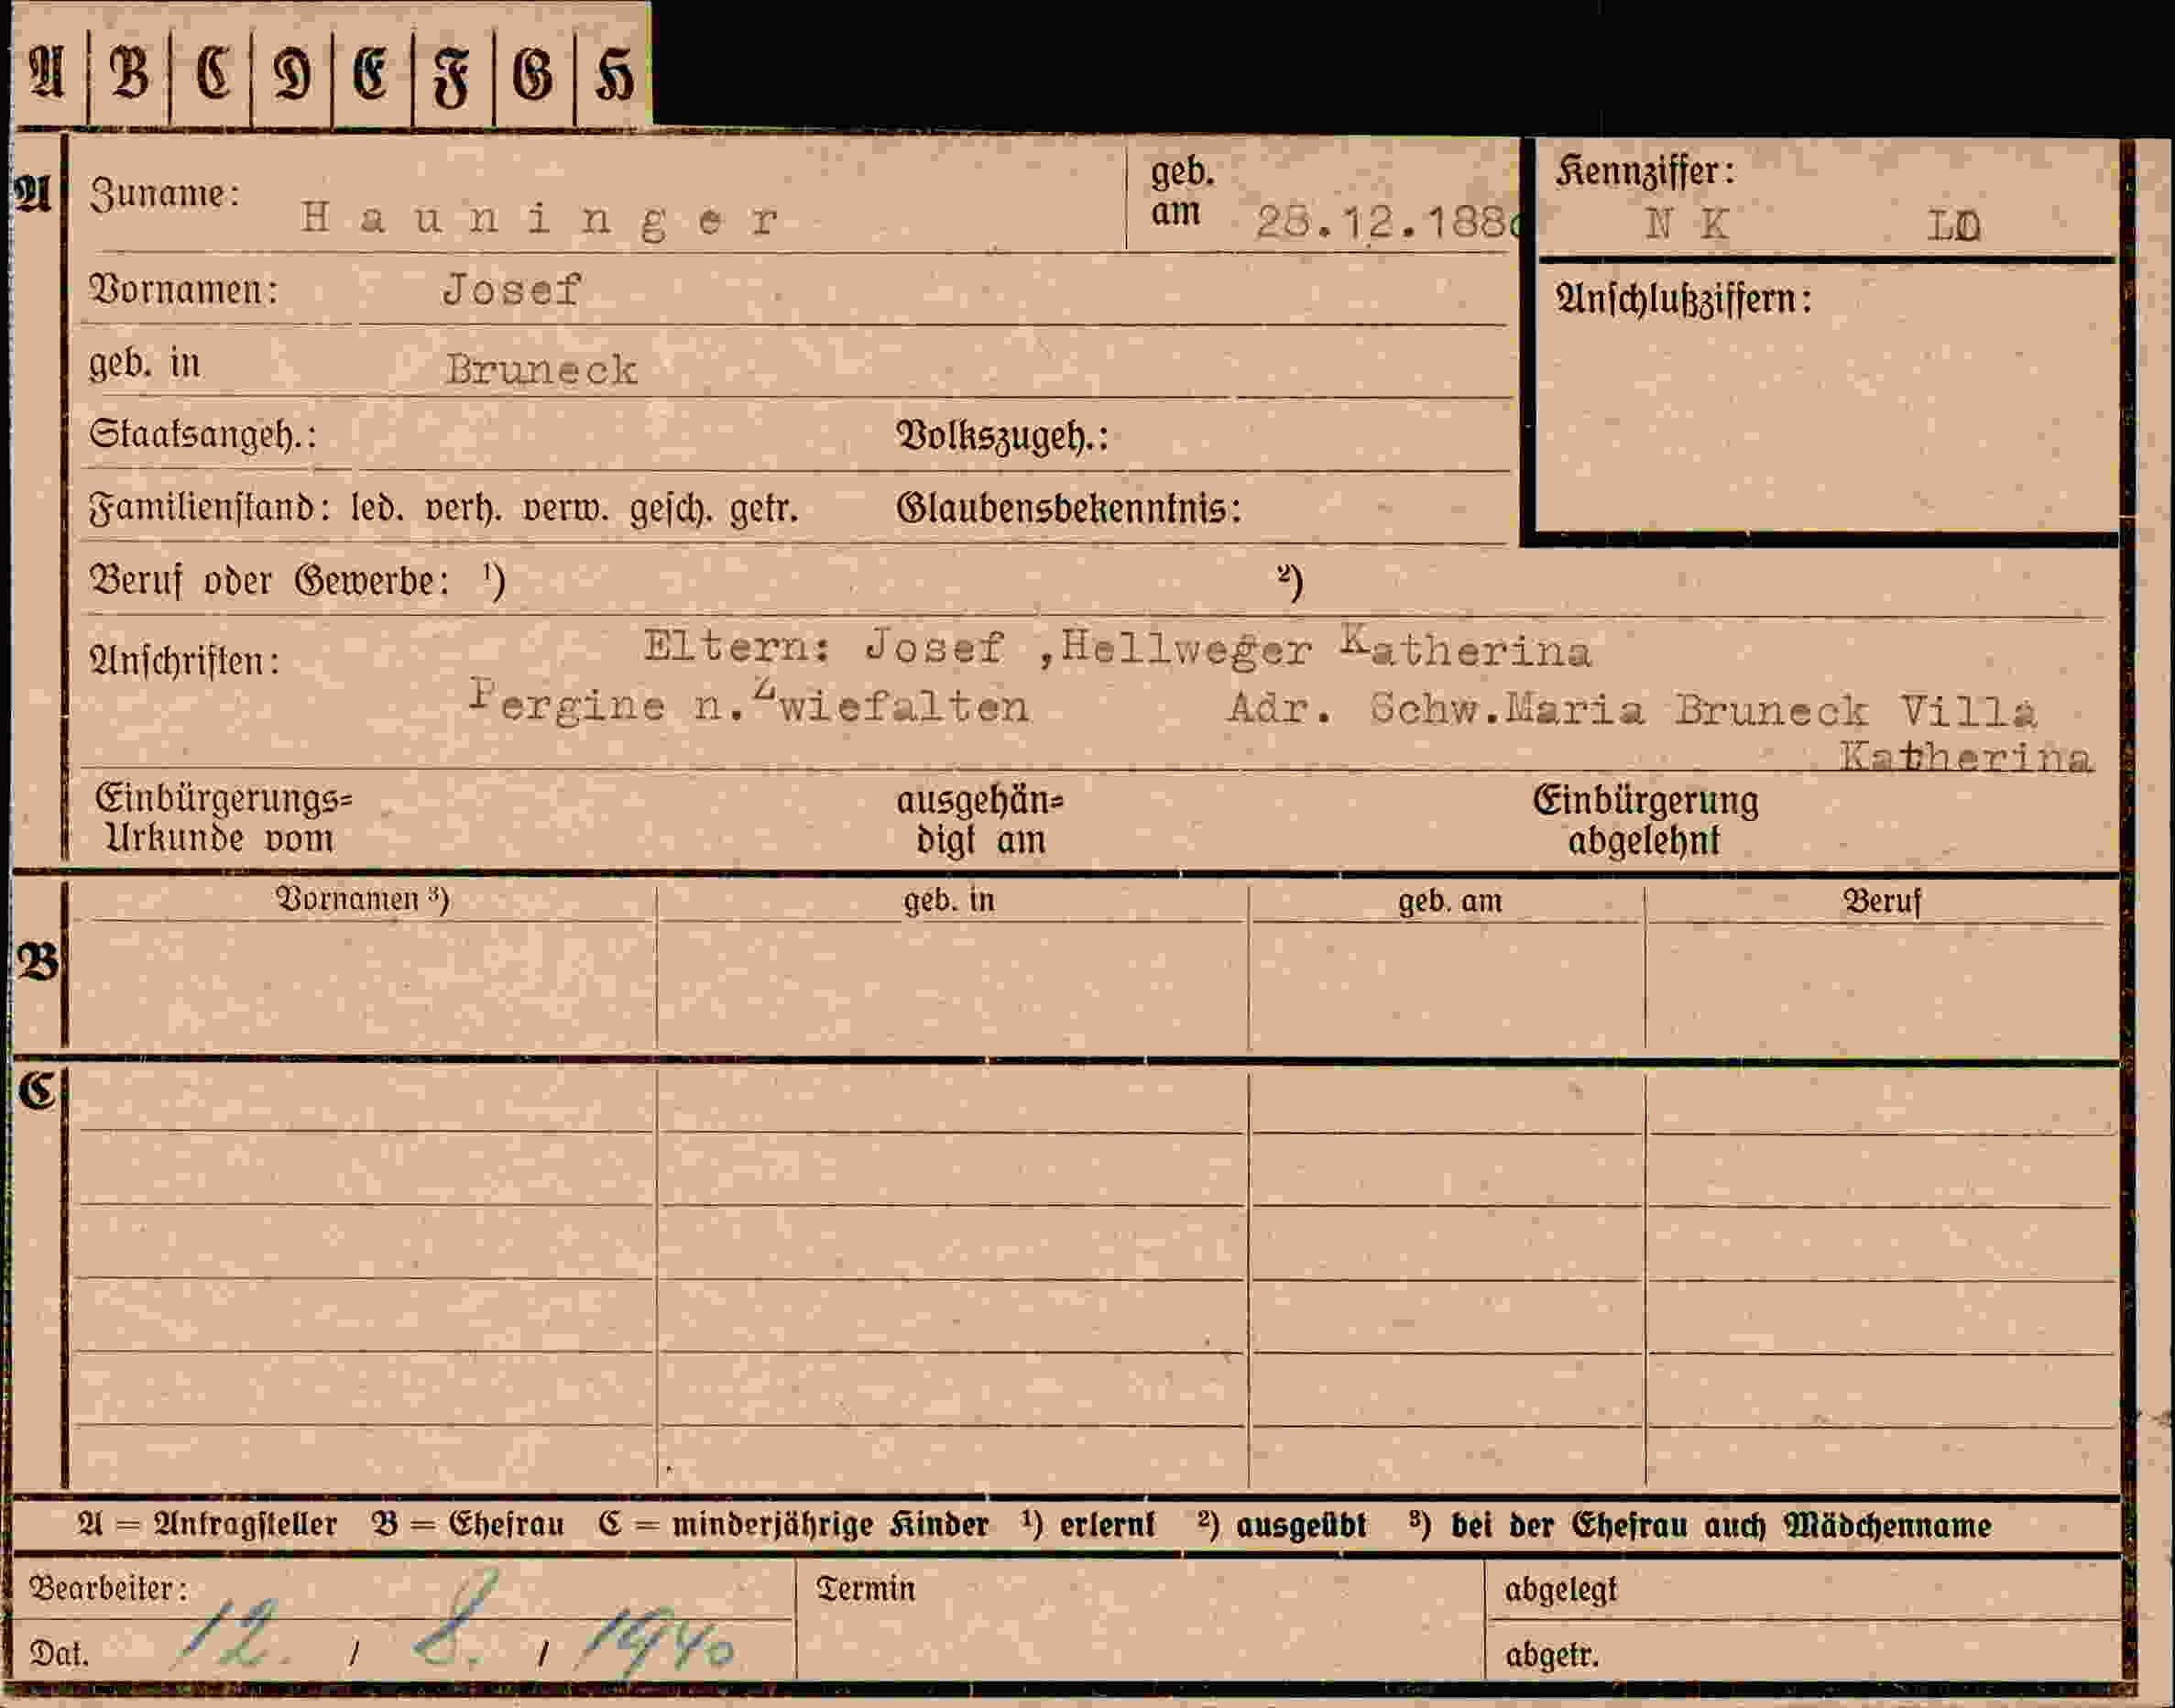 A | B | C | D | E | F | G | H
A Zuname: Hauninger geb. am 28.12.188 Kennziffer: N K LD
Vornamen: Josef Anschlußziffern:
geb. in Bruneck
Staatsangeh.: Volkszugeh.:
Familienstand: led. verh. verw. gesch. getr. Glaubensbekenntnis:
Beruf oder Gewerbe: ¹) ²)
Anschriften: Eltern: Josef ,Hellweger Katherina
Pergine n.Zwiefalten Adr. Schw.Maria Bruneck Villa
Katherina
Einbürgerungs= ausgehän= Einbürgerung
Urkunde vom digt am abgelehnt
Vornamen ³) geb. in geb. am Beruf
B
C
A = Antragsteller B = Ehefrau C = minderjährige Kinder ¹) erlernt ²) ausgeübt ³) bei der Ehefrau auch Mädchenname
Bearbeiter: Termin abgelegt
Dat. 12. / 8. / 1940 abgetr.